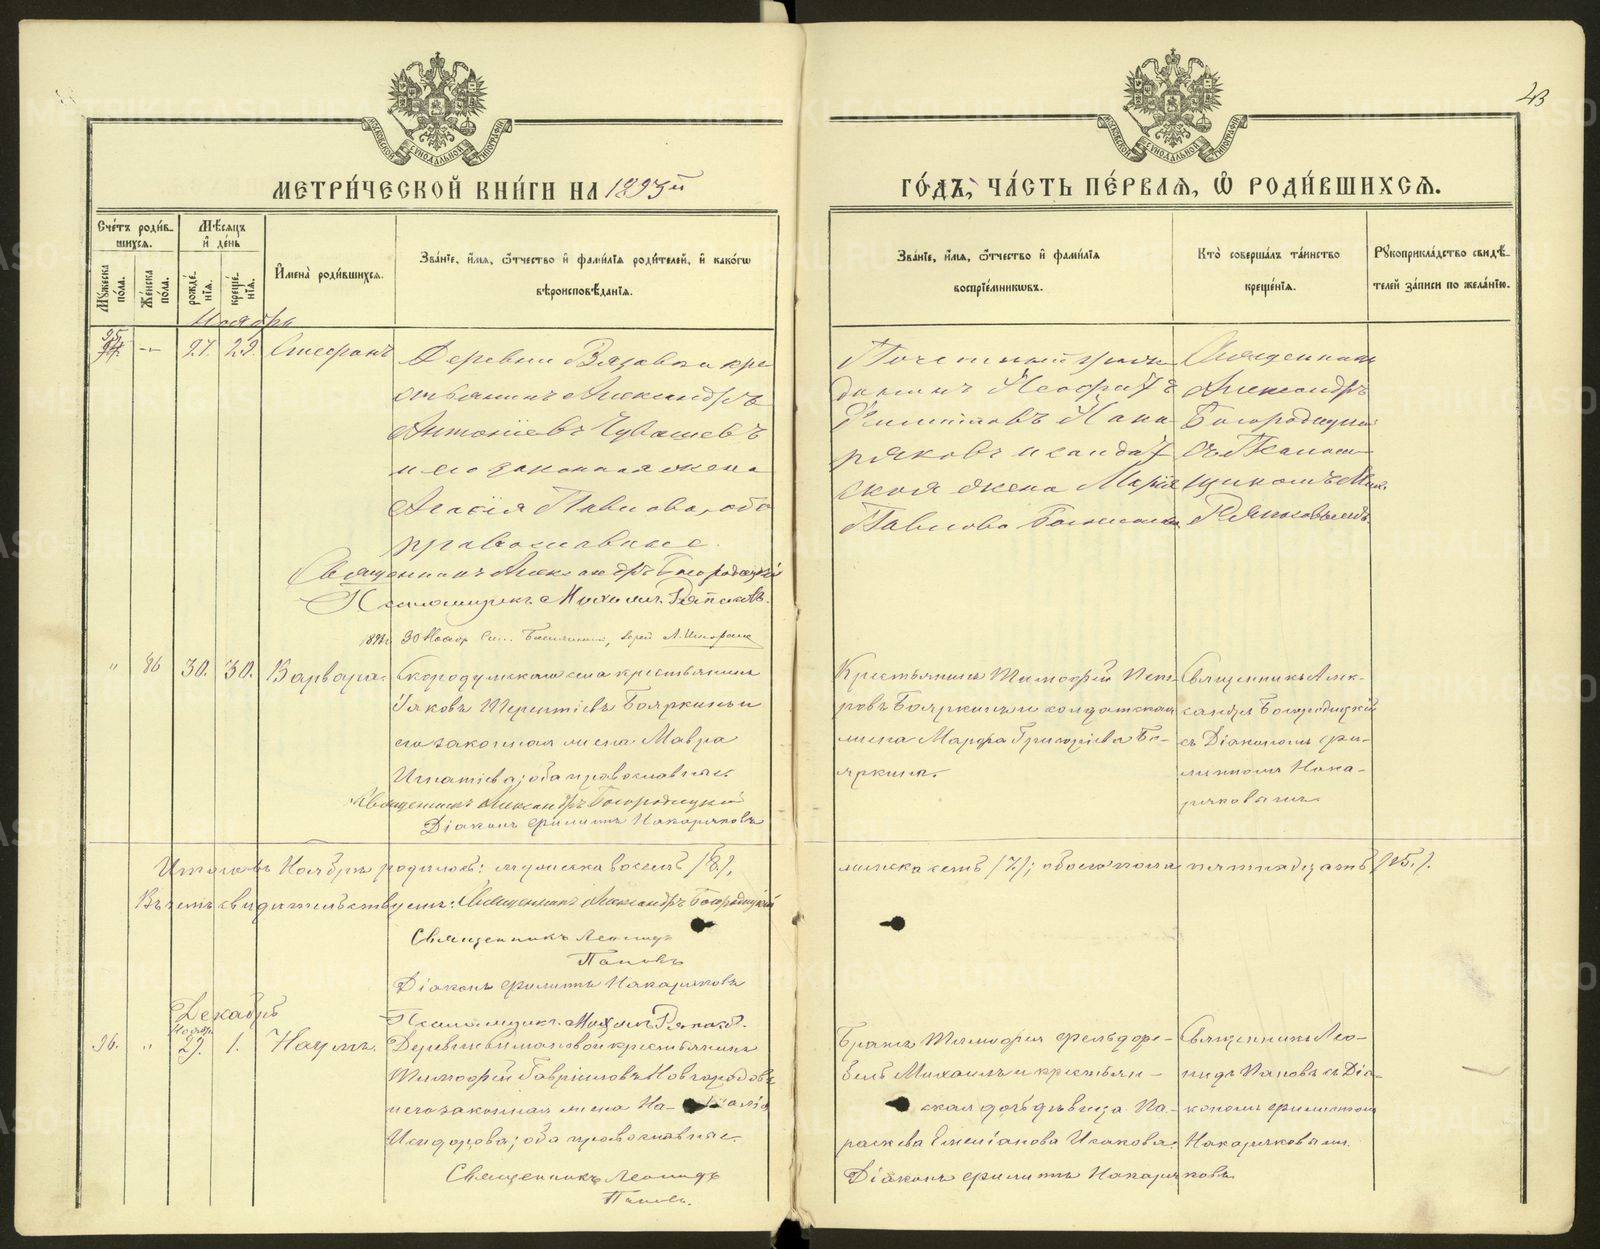 43
МОСКОВСКОЙ СѴНОДАЛЬНОЙ ТИПОГРАФІИ
МОСКОВСКОЙ СѴНОДАЛЬНОЙ ТИПОГРАФІИ
МЕТРИ́ЧЕСКОЙ КНИ́ГИ НА 1893й
ГО́ДЪ, ЧА́СТЬ ПЕ́РВАЯ, Ѡ РОДИ́ВШИХСЯ.
Сче́тъ роди́в-
шихся.
Мꙋ́жеска по́ла.
Же́нска по́ла.
Мѣ́сяцъ
и де́нь
рожде́-
нія.
креще́-
нія.
Имена̀ роди́вшихся.
Зва́ніе, и́мя, ѻ́тчество и фами́лія роди́телей, и како́гѡ
вѣроисповѣ́данія.
Зва́ніе, и́мя, ѻ́тчество и фами́лія
воспріе́мникѡвъ.
Кто̀ соверша́лъ та́инство
креще́нія.
Рꙋкоприкла́дство свидѣ́-
телей за́писи по жела́нію.
Ноябрь
95
27. 29. Стефанъ
Деревни Вязовки кре
стьянинъ Александръ
Антоніевъ Чувашевъ
и его законная жена
Агасія Павлова, оба
православные.
Священникъ Александръ Богородицкій
Псаломщикъ Михаилъ Ряпасовъ
Почетный граж
данинъ Неофитъ
Филиповъ Нака
ряковъ и солдат
ская жена Марія
Павлова
Священникъ
Александръ
Богородицкій
съ Псалом
щикомъ Мих.
30 Ноябр
" 86 30. 30. Варвара.
Скородумскаго села крестьянинъ
Іаковъ Терентіевъ Бояркинъ и
его законная жена Мавра
Игнатіева; оба православные.
Священникъ Александръ Богородицкій
Діаконъ Филиппъ Накоряковъ
Крестьянинъ Тимофей Пет-
ровъ Бояркинъ и солдатская
жена Марфа Григоріева Бо-
яркина.
Священникъ Алек-
сандръ Богородицкій
съ Діакономъ Фи-
липпомъ Нако-
ряковымъ
Итого въ Ноябрѣ родилось: мужеска восемь /8/,
женска семь /7/; обоего пола пятнадцать /15/.
Въ чемъ свидѣтельствуемъ: Священникъ Александръ Богородицкій
Священникъ Леонидъ
Поповъ
Діаконъ Филиппъ Накоряковъ
Псаломщикъ Михаилъ Ряпасовъ.
Декабрь
Ноябр.
96. " 29. 1. Наумъ.
Тимофей Гавріиловъ Новгородовъ
и его законная жена На-талія
Исидорова; оба православные.
Священникъ Леонидъ
Поповъ.
Братъ Тимофея фельдфе-
бель Михаилъ и крестьян-
ская дочь дѣвица Па-
раскева Емеліанова Исакова.
Діаконъ Филиппъ Накоряковъ.
Священникъ Лео-
нидъ Поповъ съ Діа-
кономъ Филиппомъ
Накоряковымъ.